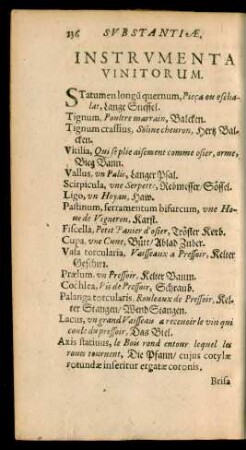 136 SVBSTANTIÆ.
INSTRVMENTA
VINITORUM.
STatumen longū quernum, Pieça ou eschalar,
Lange Stiessel.
Tignum, Poultre marrain, Balcken.
Tignum crassius, Soliue cheuron, Hertz Balcken.
Vitilia, Qui se plie aisement comme osier, orme,
Bieg Baum.
Vallus, vn Palis, Langer Pfal.
Scirpicula, vne Serpette, Rebmesser
Ligo, vn Hoyau, Haw.
Pastinum, ferramentum bifurcum, vne Houe
de Vigneron, Karst.
Fiscella, Petit Panier d'osier, Tröster Kerb.
Cupa, vne Cuue, Bütt/ Ablad Zuber.
Vasa torcularia, Vaisseaux a Pressoir, Kelter
Geschirr.
Prælum, vn Pressoir, Kelter Baum.
Cochlea, Vis de Pressoir, Schraub.
Palanga torcularis, Rouleaux de Pressoir, Kelter
Stangen/ Wend Stangen.
Lacus, vn grand Vaisseau a receuoir le vin qui
coule du pressoir, Das Biet.
Axis statiuus, le Bois rond entour lequel les
roues tournent, Die Pfann/ cujus cotylæ
rotundæ inseritur ergatæ coronis.
Brisa